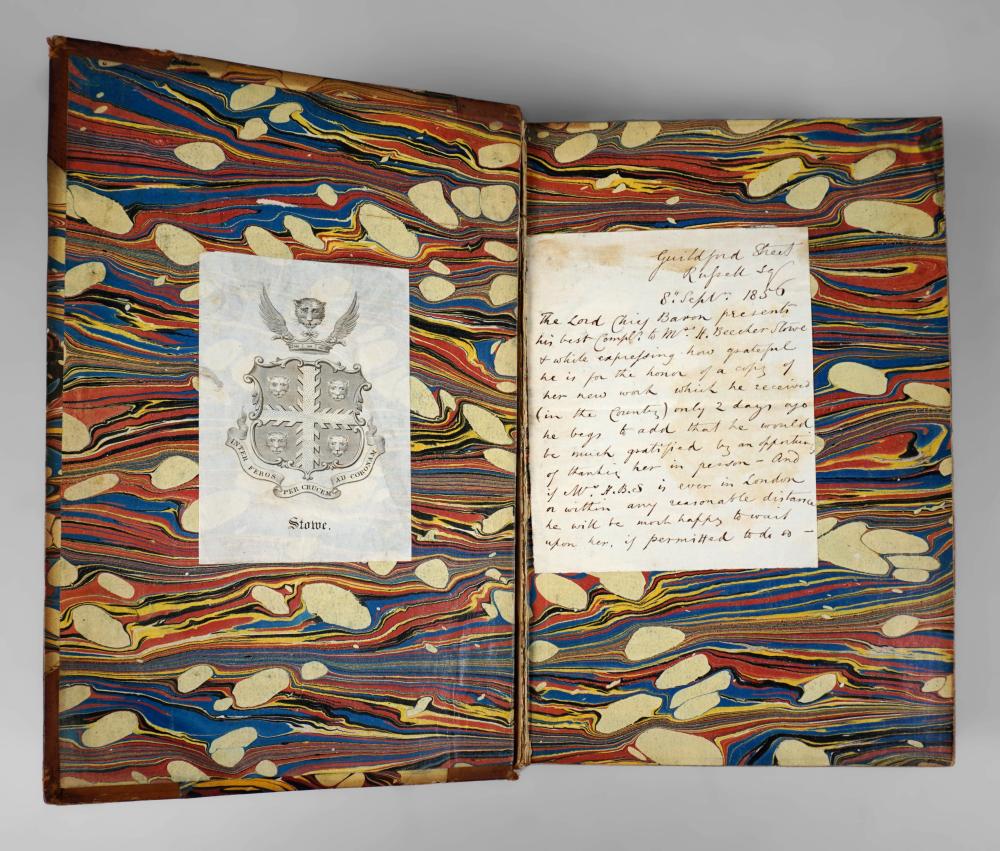 INTER FEROS PER CRUCEM AD CORONAM
Stowe.
Guildford Street
Russell Sq
8th Septr. 1856
The Lord Chief Baron presents
his best Compts. to Mrs. H. Beecher Stowe
& while expressing how grateful
he is for the honor of a copy of
her new work which he received
(in the Country) only 2 days ago
he begs to add that he would
be much gratified by an opportunity
of thanking her in person - And
if Mrs. H.B.S is ever in London
or within any reasonable distance
he will be most happy to wait
upon her, if permitted to do so -